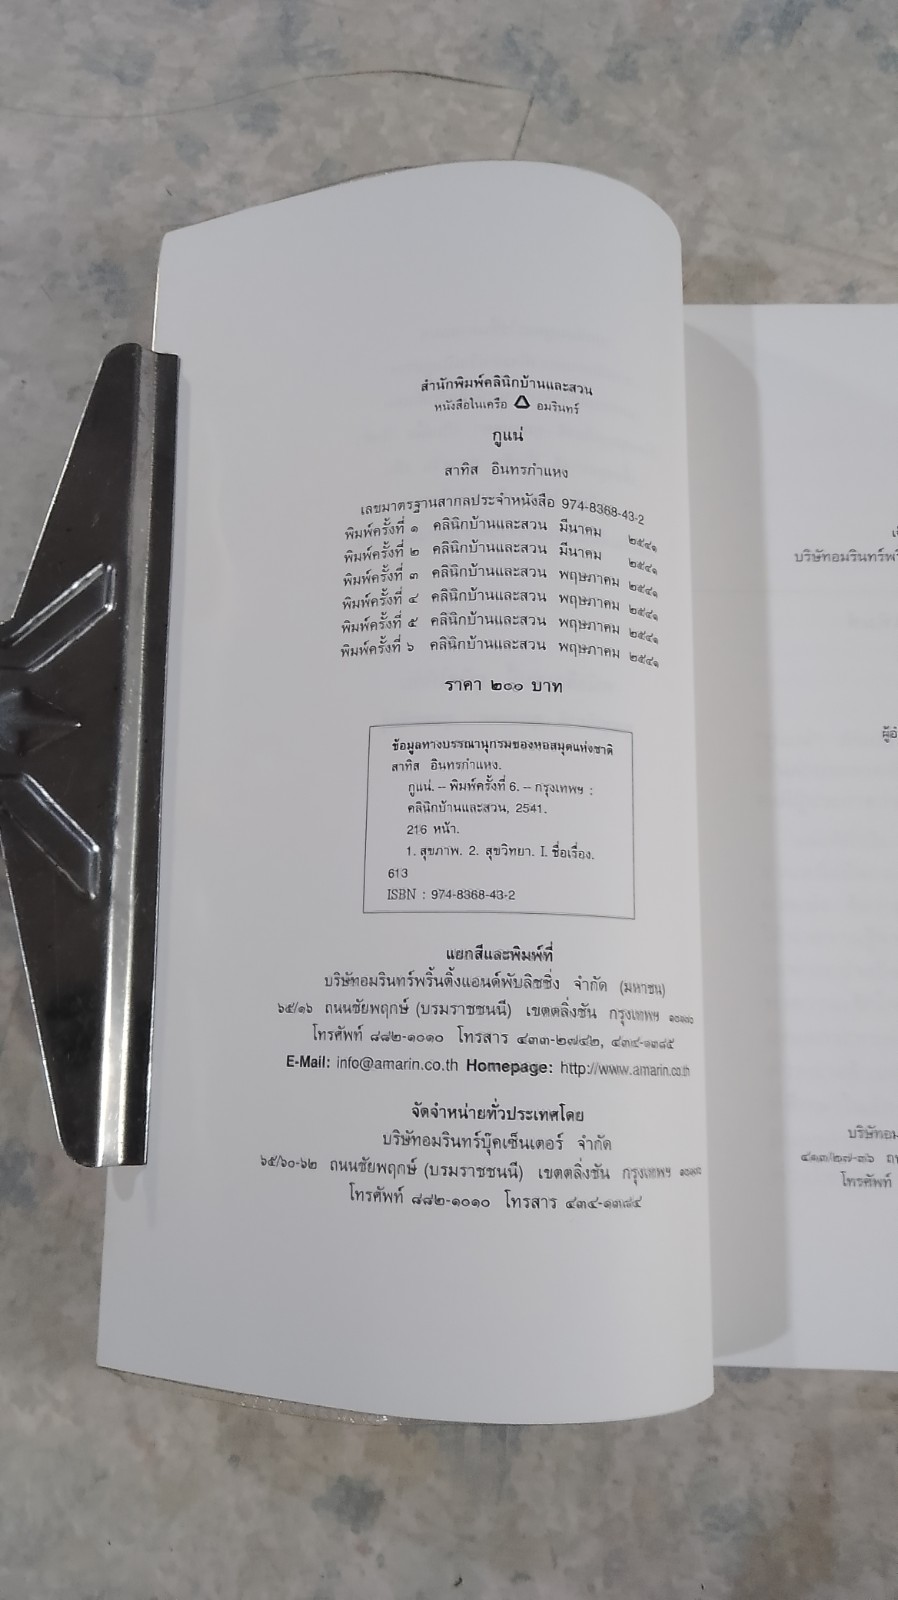 สำนักพิมพ์คลินิกบ้านและสวน
หนังสือในเครือ อมรินทร์
กูแน่
สาทิส อินทรกำแหง
เลขมาตรฐานสากลประจำหนังสือ 974-8368-43-2
พิมพ์ครั้งที่ ๑ คลินิกบ้านและสวน มีนาคม ๒๕๔๑
พิมพ์ครั้งที่ ๒ คลินิกบ้านและสวน มีนาคม ๒๕๔๑
พิมพ์ครั้งที่ ๓ คลินิกบ้านและสวน พฤษภาคม ๒๕๔๑
พิมพ์ครั้งที่ ๔ คลินิกบ้านและสวน พฤษภาคม ๒๕๔๑
พิมพ์ครั้งที่ ๕ คลินิกบ้านและสวน พฤษภาคม ๒๕๔๑
พิมพ์ครั้งที่ ๖ คลินิกบ้านและสวน พฤษภาคม ๒๕๔๑
ราคา ๒๐๐ บาท
ข้อมูลทางบรรณานุกรมของหอสมุดแห่งชาติ
สาทิส อินทรกำแหง.
กูแน่. – พิมพ์ครั้งที่ 6. – กรุงเทพฯ :
คลินิกบ้านและสวน, 2541.
216 หน้า.
1. สุขภาพ. 2. สุขวิทยา. I. ชื่อเรื่อง.
613
ISBN : 974-8368-43-2
แยกสีและพิมพ์ที่
บริษัทอมรินทร์พริ้นติ้งแอนด์พับลิชชิ่ง จำกัด (มหาชน)
๖๕/๑๖ ถนนชัยพฤกษ์ (บรมราชชนนี) เขตตลิ่งชัน กรุงเทพฯ ๑๐๑๗๐
โทรศัพท์ ๘๘๒-๑๐๑๐ โทรสาร ๔๓๓-๒๗๔๒, ๔๓๔-๑๓๘๕
E-Mail: info@amarin.co.th Homepage: http://www.amarin.co.th
จัดจำหน่ายทั่วประเทศโดย
บริษัทอมรินทร์บุ๊คเซ็นเตอร์ จำกัด
๖๕/๖๐-๖๒ ถนนชัยพฤกษ์ (บรมราชชนนี) เขตตลิ่งชัน กรุงเทพฯ ๑๐๑๗๐
โทรศัพท์ ๘๘๒-๑๐๑๐ โทรสาร ๔๓๔-๑๓๘๔
โทรศัพท์